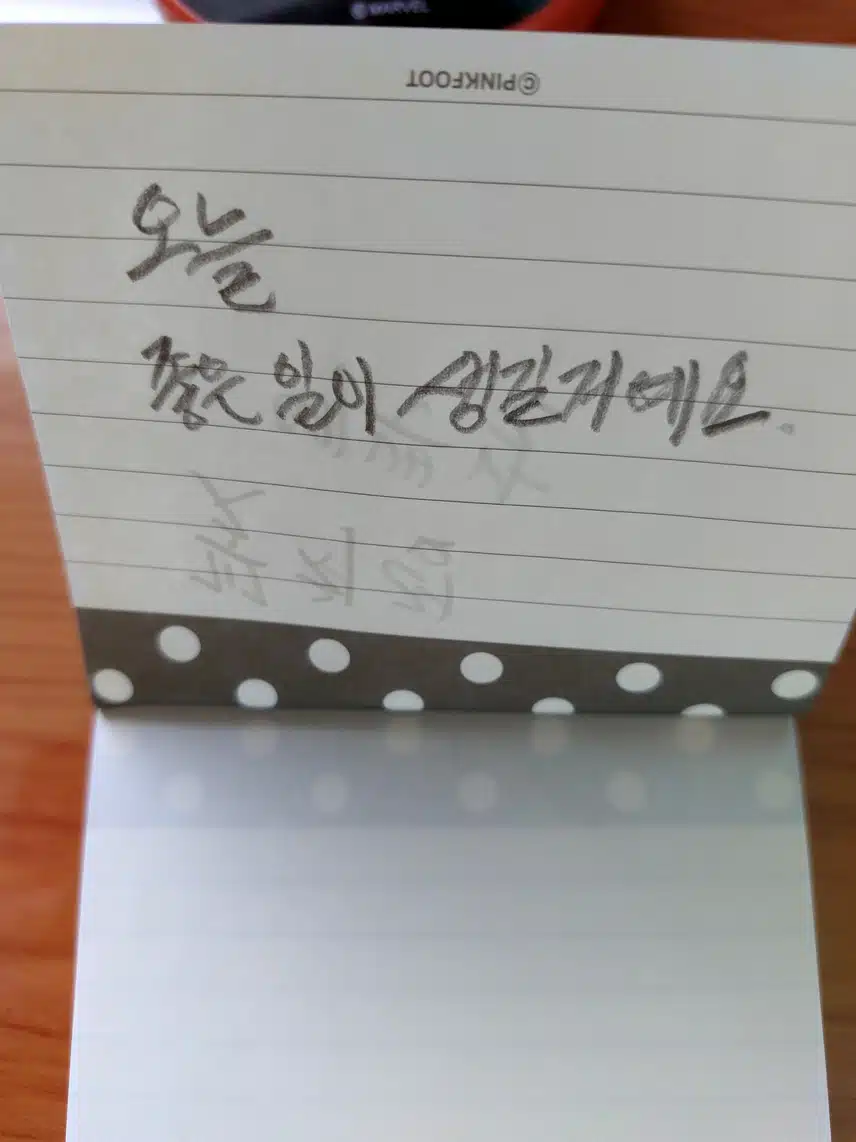 MARVEL
©PINKFOOT
오늘
좋은 일이 생길거예요.